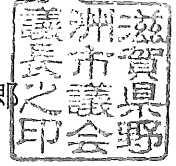 滋賀県野
洲市議会
議長之印
郎